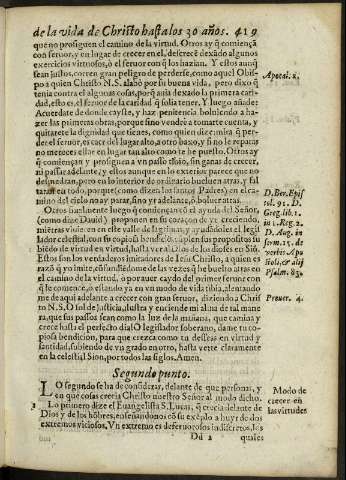 de la vida de Christo hasta los 30 años. 419
que no prosiguen el camino de la virtud. Otros ay q̃ comiençã
con feruor, y en lugar de crecer en el, descrecẽ dexãdo algunos
exercicios virtuosos, ò el feruor con q̃ los hazian. Y estos aunq̃
seã justos, corren gran peligro de perderse, como aquel Obis-
po a quien Christo N.S. alabò por su buena vida, pero dixo q̃
tenia contra el algunas cosas, porq̃ auia dexado la primera cari-
dad, esto es, el feruor de la caridad q̃ solia tener. Y luego añade:
Acuerdate de donde cayste, y haz penitencia boluiendo a ha-
zer las primeras obras, porque sino vendrè a tomarte cuenta, y
quitarete la dignidad que tienes, como quien dize: mira q̃ per-
der el feruor, es caer del lugar alto, a otro baxo, y si no le reparas
no mereces estar en lugar tan alto como te he puesto. Otros ay
q̃ comiençan y prosiguen a vn passo tibio, sin ganas de crecer,
ni passar adelante, y estos aunque en lo exterior parece que no
descrezcan, pero en lo interior de ordinario bueluen atras, y fal
taràn en todo, porque (como dizen los santos Padres) en el ca-
mino del cielo no ay parar, sino yr adelante, ò boluer atras.
Otros finalmente luego q̃ comiençan cõ el ayuda del Señor
(como dize Dauid) proponen en su coraçon de yr creciendo,
miẽtras viuiere en este valle de lagrimas, y ayudãdoles el legis
lador celestial, con su copiosa bendiciõ, cũplen sus propositos su
biẽdo de virtud en virtud, hasta ver al Dios de los dioses en Siõ.
Estos son los verdaderos imitadores de Iesu Christo, a quien es
razõ q̃ yo imite, cõfundiẽdome de las vezes q̃ he buelto atras en
el camino de la virtud, ò por auer caydo del primer feruor con
q̃ le comencè, ò estando ya en vn modo de vida tibia, alentando
me de aqui adelante a crecer con gran feruor, diziendo a Chris
to N.S. O sol de justicia, ilustra y enciende mi alma de tal mane
ra, que sus passos sean como la luz de la mañana, que camina y
crece hasta el perfecto dia! O legislador soberano, dame tu co-
piosa bendicion, para que crezca como tu desseas en virtud y
santidad, subiendo de vn grado en otro, hasta verte claramente
en la celestial Sion, por todos los siglos. Amen.
Apocal. 2.
D. Ber. Epis
tol. 91. D.
Greg. lib. 1.
in 1. Reg. 2.
D. Aug. in
serm. 15. de
verbis Apo
stoli, & alij
Psalm. 83.
Prouer. 4.
Segundo punto.
LO segundo se ha de considerar, delante de que personas, y
en que cosas crecia Christo nuestro Señor al modo dicho.
1 Lo primero dize el Euangelista S. Lucas, q̃ crecia delante de
Dios y de los hõbres, enseñandonos cõ su exẽplo a huyr de dos
extremos viciosos. Vn extremo es de feruorosos indiscretos, los
Modo de
crecer en
las virtudes
Dd 2 quales